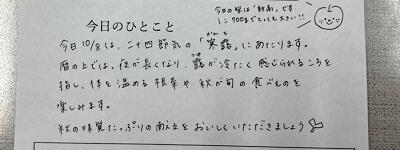 今日の梨は「新高」です
1こ900gまでとっても大きい!!
今日のひとこと
今日10/8は、二十四節気の「寒露」にあたります。
かんろ
暦の上では、夜が長くなり、露が冷たく感じられるころを
つゆ
指し、体を温める根菜や秋が旬の食べものを
楽しみます。
秋の味覚たっぷりの献立をおいしくいただきましょう